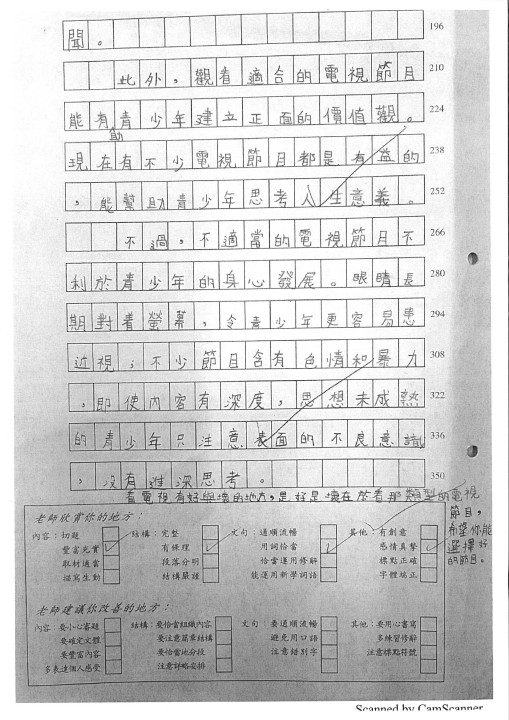 聞。 196
此外，觀看適合的電視節目 210
能有助青少年建立正面的價值觀。 224
現在有不少電視節目都是有益的 238
，能幫助青少年思考人生意義。 252
不過，不適當的電視節目不 266
利於青少年的身心發展。眼睛長 280
期對着螢幕，令青少年更容易患 294
近視；不少節目含有色情和暴力 308
，即使內容有深度，思想未成熟 322
的青少年只注意表面的不良意識 336
，沒有進深思考。 350
看電視有好與壞的地方，是好是壞在於看那類型的電視
節目，
希望你能
選擇好
的節目。
老師欣賞你的地方：
內容：切題 結構：完整 文句：通順流暢 其他：有創意
豐富充實 有條理 用詞恰當 感情真摯
取材適當 段落分明 恰當運用修辭 標點正確
描寫生動 結構嚴謹 能運用新學詞語 字體端正
老師建議你改善的地方：
內容：要小心審題 結構：要恰當組織內容 文句：要通順流暢 其他：要用心書寫
要確定文體 要注意篇章結構 避免用口語 多練習修辭
要豐富內容 要恰當地分段 注意錯別字 注意標點符號
多表達個人感受 注意詳略安排
Scanned by CamScanner